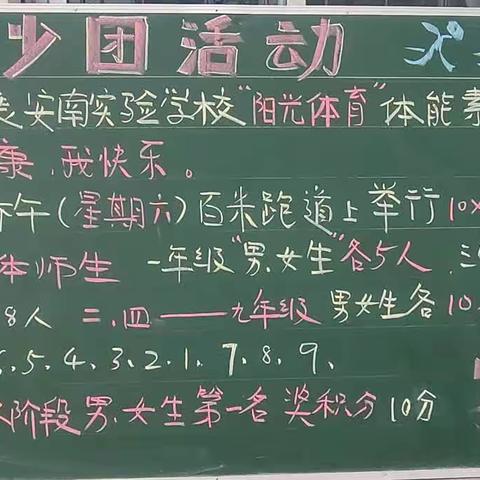 少团活动
安南实验学校“阳光体育”体能素
康,我快乐。
下午(星期六)百米跑道上举行10×
体师生 一年级“男、女生”各5人、三
8人 二、四——九年级 男女生各10
6、5、4、3、2、1、7、8、9、
阶段男、女生第一名奖积分10分